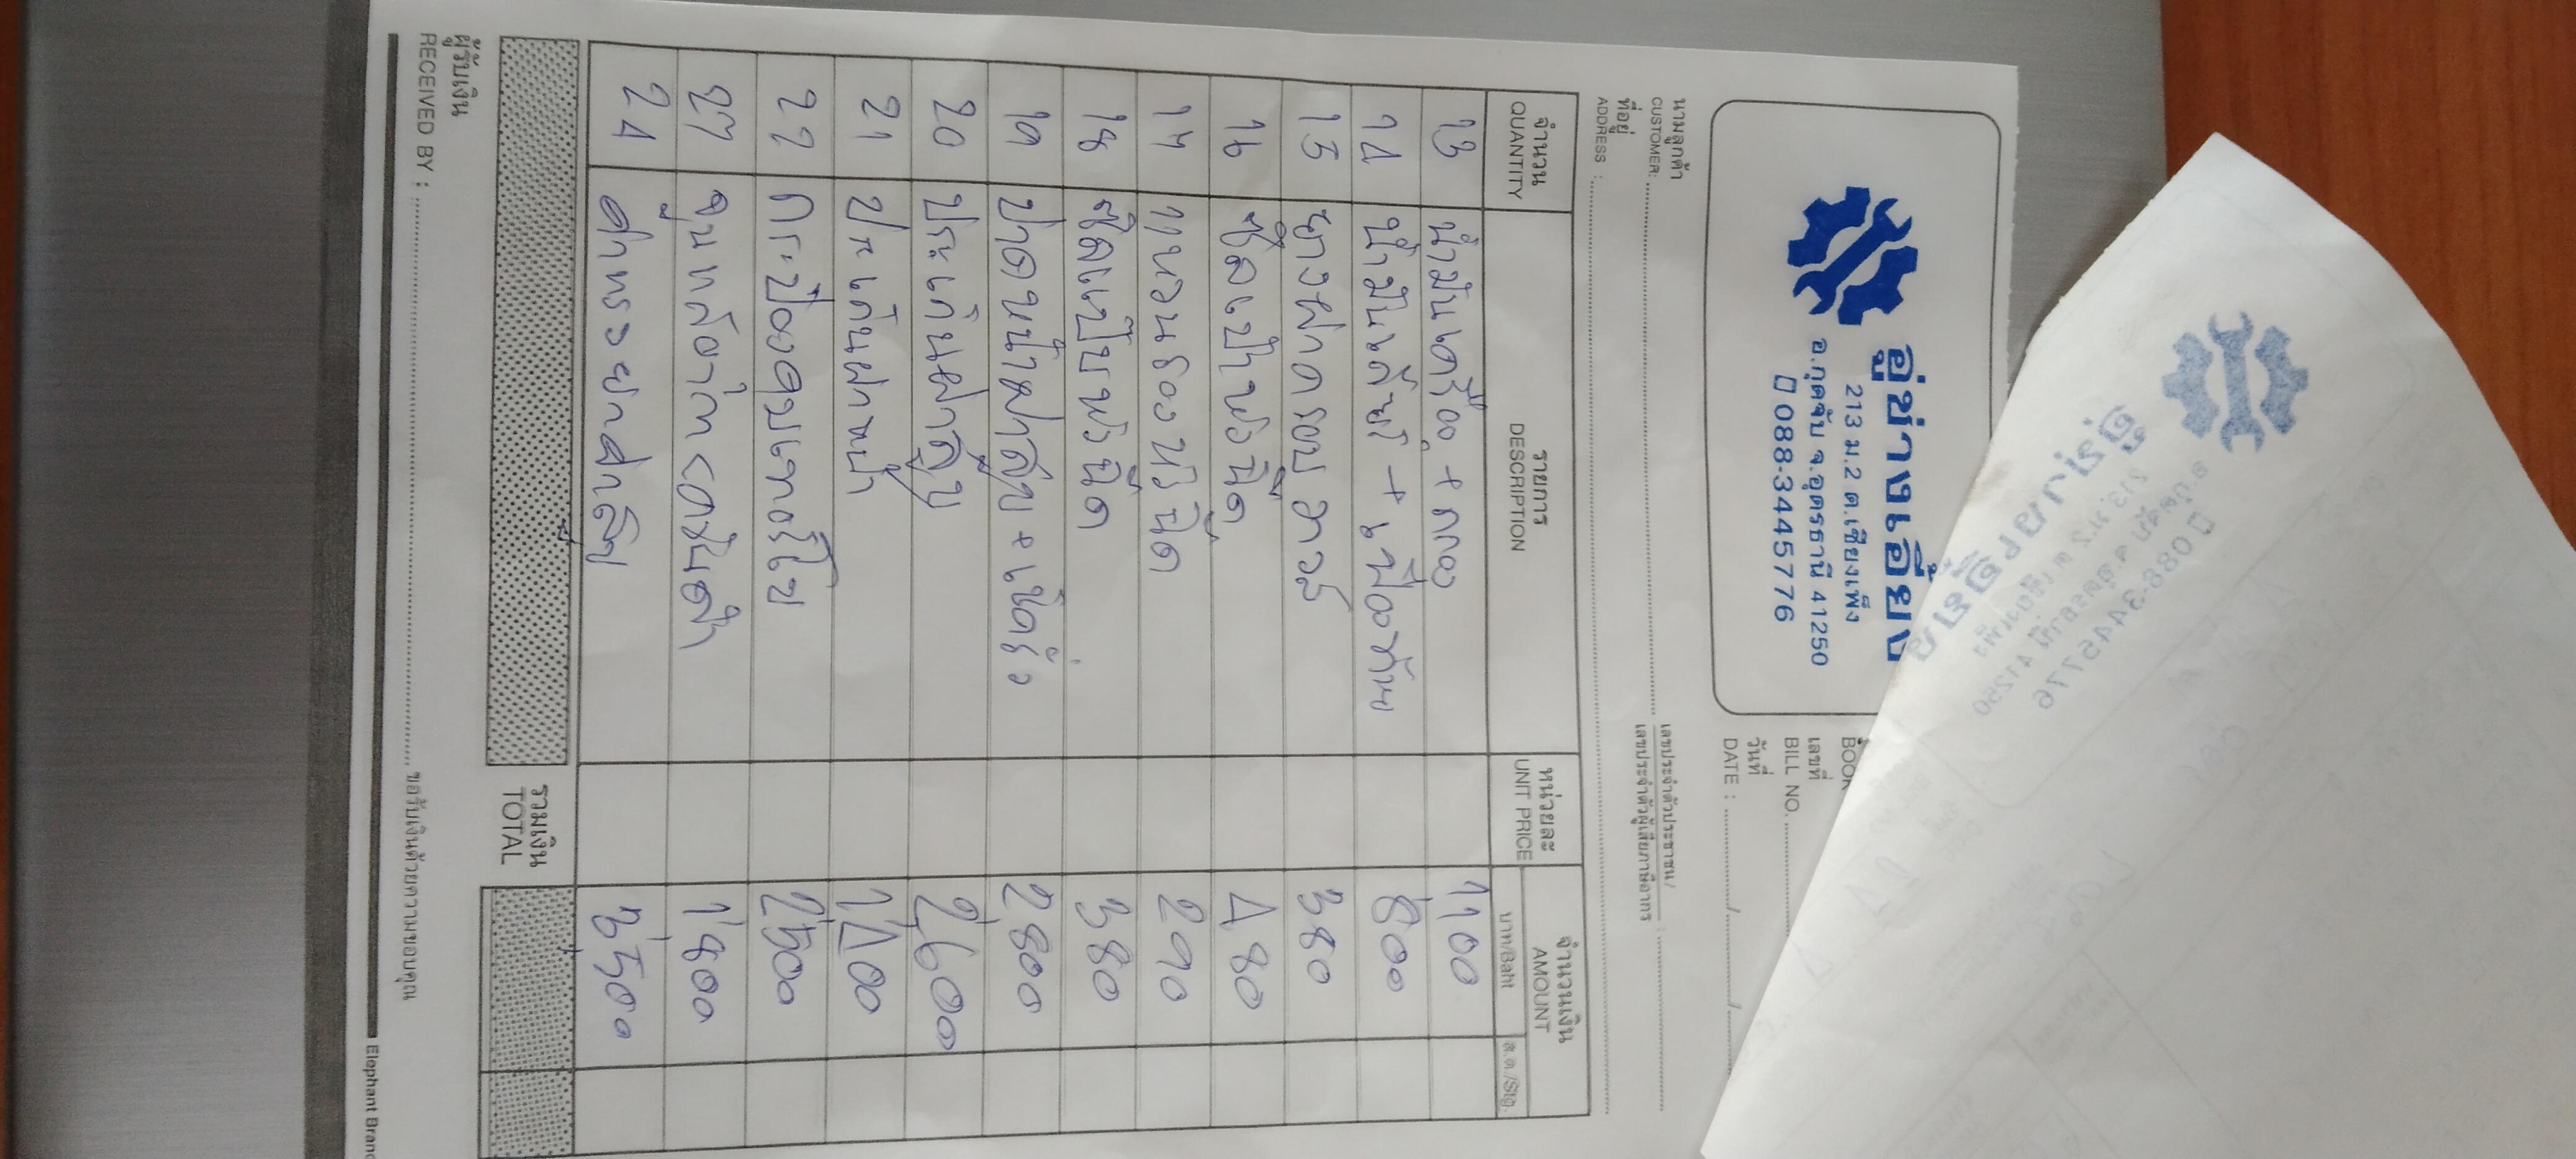 อู่ช่างเอี้ยง
213 ม.2 ต.เชียงเพ็ง
อ.กุดจับ จ.อุดรธานี 41250
088-3445776
BOOK
เลขที่
BILL NO.
วันที่
DATE : / /
นามลูกค้า
CUSTOMER:
เลขประจำตัวประชาชน/
เลขประจำตัวผู้เสียภาษีอากร :
ที่อยู่
ADDRESS :
จำนวน รายการ หน่วยละ จำนวนเงิน
QUANTITY DESCRIPTION UNIT PRICE AMOUNT
บาท/Baht ส.ต./Stg.
13 น้ำมันเครื่อง + กรอง 1100
14 น้ำมันเกียร์ + เฟืองท้าย 800
15 ยางฝาครอบวาวล์ 380
16 ซีลเบ้าหัวฉีด 480
17 แหวนรองหัวฉีด 290
18 ซีลแป๊บหัวฉีด 380
19 ปาดหน้าฝาสูบ + เช็ครั่ว 2800
20 ประเก็นฝาสูบ 2,600
21 ประเก็นฝาหน้า 1,400
22 กระป๋องคุมเทอร์โบ 2,500
23 1,800
24 3,500
รวมเงิน
TOTAL
ผู้รับเงิน
RECEIVED BY : ขอรับเงินด้วยความขอบคุณ
Elephant Brand